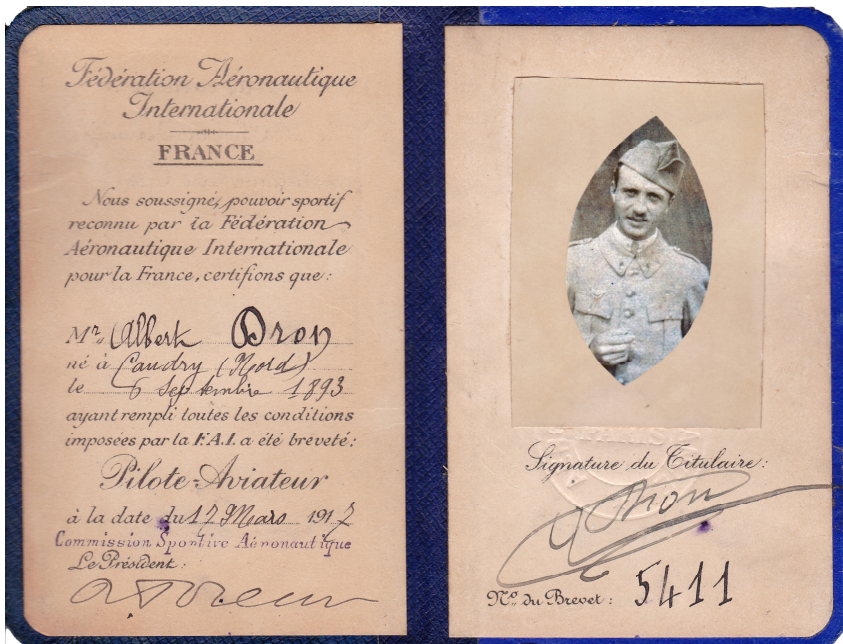 Fédération Aéronautique
Internationale
FRANCE
Nous soussigné, pouvoir sportif
reconnu par la Fédération
Aéronautique Internationale
pour la France, certifions que:
Mr. Albert Dron
né à Caudry (Nord)
le 6 Septembre 1893
ayant rempli toutes les conditions
imposées par la F.A.I. a été breveté:
Pilote-Aviateur
à la date du 17 Mars 1917
Commission Sportive Aéronautique
Le Président:
Signature du Titulaire:
Dron
No. du Brevet: 5411